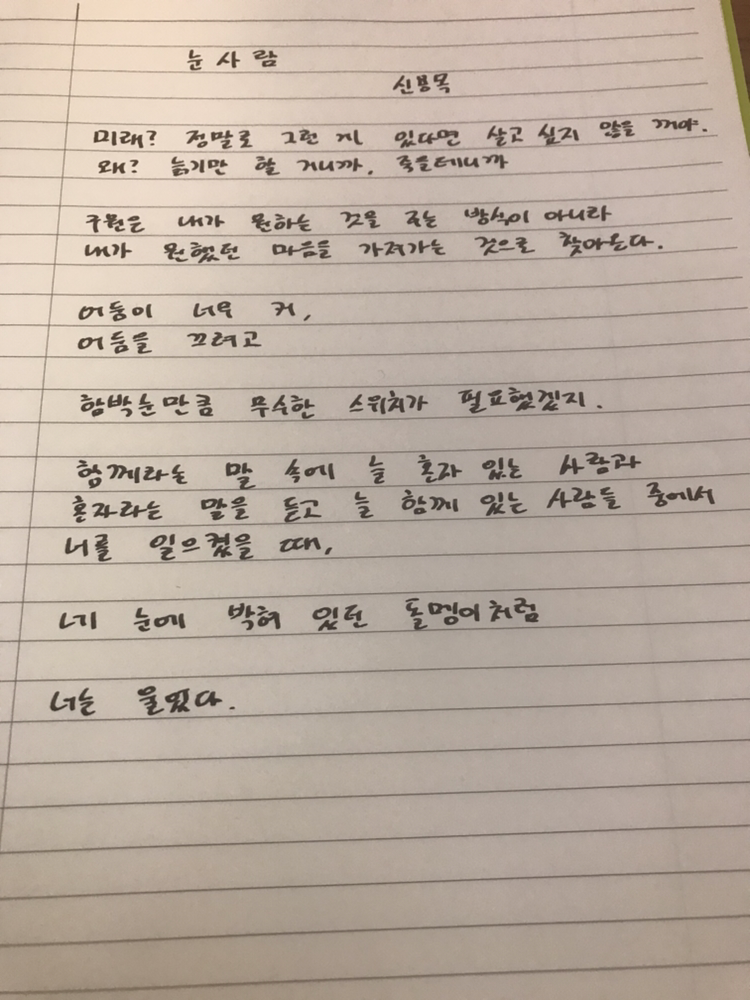 눈사람
신용목
미래? 정말로 그런 게 있다면 살고 싶지 않을 꺼야.
왜? 늙기만 할 거니까, 죽을테니까
구원은 내가 원하는 것을 주는 방식이 아니라
내가 원했던 마음을 가져가는 것으로 찾아온다.
어둠이 너무 커,
어둠을 끄려고
함박눈만큼 무수한 스위치가 필요했겠지.
함께라는 말 속에 늘 혼자 있는 사람과
혼자라는 말을 듣고 늘 함께 있는 사람들 중에서
너를 일으켰을 때,
네 눈에 박혀 있던 돌멩이처럼
너는 울었다.